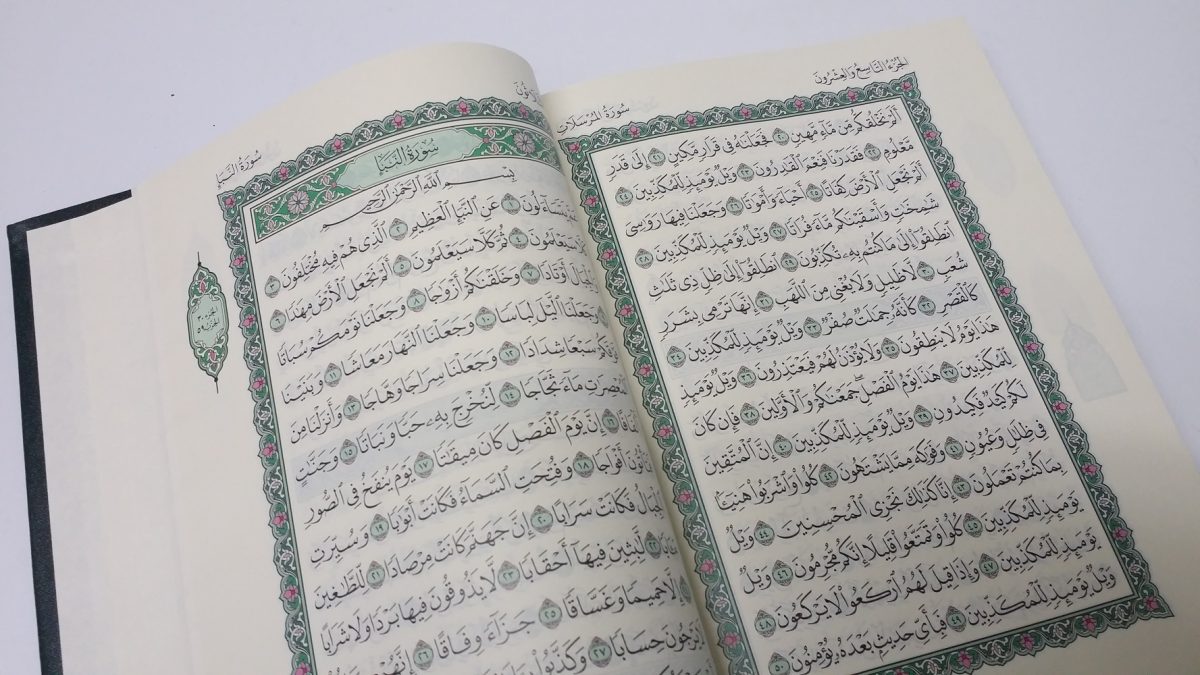 الجزء التاسع والعشرون
سورة المرسلات
ألم نخلقكم من ماء مهين ٢٠ فجعلناه في قرار مكين ٢١ إلى قدر
معلوم ٢٢ فقدرنا فنعم القادرون ٢٣ ويل يومئذ للمكذبين ٢٤
ألم نجعل الأرض كفاتا ٢٥ أحياء وأمواتا ٢٦ وجعلنا فيها رواسي
شامخات وأسقيناكم ماء فراتا ٢٧ ويل يومئذ للمكذبين ٢٨
انطلقوا إلى ما كنتم به تكذبون ٢٩ انطلقوا إلى ظل ذي ثلاث
شعب ٣٠ لا ظليل ولا يغني من اللهب ٣١ إنها ترمي بشرر
كالقصر ٣٢ كأنه جمالت صفر ٣٣ ويل يومئذ للمكذبين ٣٤
هذا يوم لا ينطقون ٣٥ ولا يؤذن لهم فيعتذرون ٣٦ ويل يومئذ
للمكذبين ٣٧ هذا يوم الفصل جمعناكم والأولين ٣٨ فإن كان
لكم كيد فكيدون ٣٩ ويل يومئذ للمكذبين ٤٠ إن المتقين
في ظلال وعيون ٤١ وفواكه مما يشتهون ٤٢ كلوا واشربوا هنيئا
بما كنتم تعملون ٤٣ إنا كذلك نجزي المحسنين ٤٤ ويل
يومئذ للمكذبين ٤٥ كلوا وتمتعوا قليلا إنكم مجرمون ٤٦ ويل
يومئذ للمكذبين ٤٧ وإذا قيل لهم اركعوا لا يركعون ٤٨
ويل يومئذ للمكذبين ٤٩ فبأي حديث بعده يؤمنون ٥٠
سورة النبإ
سورة النبإ
بسم الله الرحمن الرحيم
يتساءلون ١ عن النبإ العظيم ٢ الذي هم فيه مختلفون ٣
سيعلمون ٤ ثم كلا سيعلمون ٥ ألم نجعل الأرض مهادا ٦
والجبال أوتادا ٧ وخلقناكم أزواجا ٨ وجعلنا نومكم سباتا
٩ وجعلنا الليل لباسا ١٠ وجعلنا النهار معاشا ١١ وبنينا
فوقكم سبعا شدادا ١٢ وجعلنا سراجا وهاجا ١٣ وأنزلنا من
المعصرات ماء ثجاجا ١٤ لنخرج به حبا ونباتا ١٥ وجنات
ألفافا ١٦ إن يوم الفصل كان ميقاتا ١٧ يوم ينفخ في الصور
فتأتون أفواجا ١٨ وفتحت السماء فكانت أبوابا ١٩ وسيرت
الجبال فكانت سرابا ٢٠ إن جهنم كانت مرصادا ٢١ للطاغين
مآبا ٢٢ لابثين فيها أحقابا ٢٣ لا يذوقون فيها بردا ولا شرابا
إلا حميما وغساقا ٢٥ جزاء وفاقا ٢٦ إنهم
يرجون حسابا ٢٧ وكذبوا